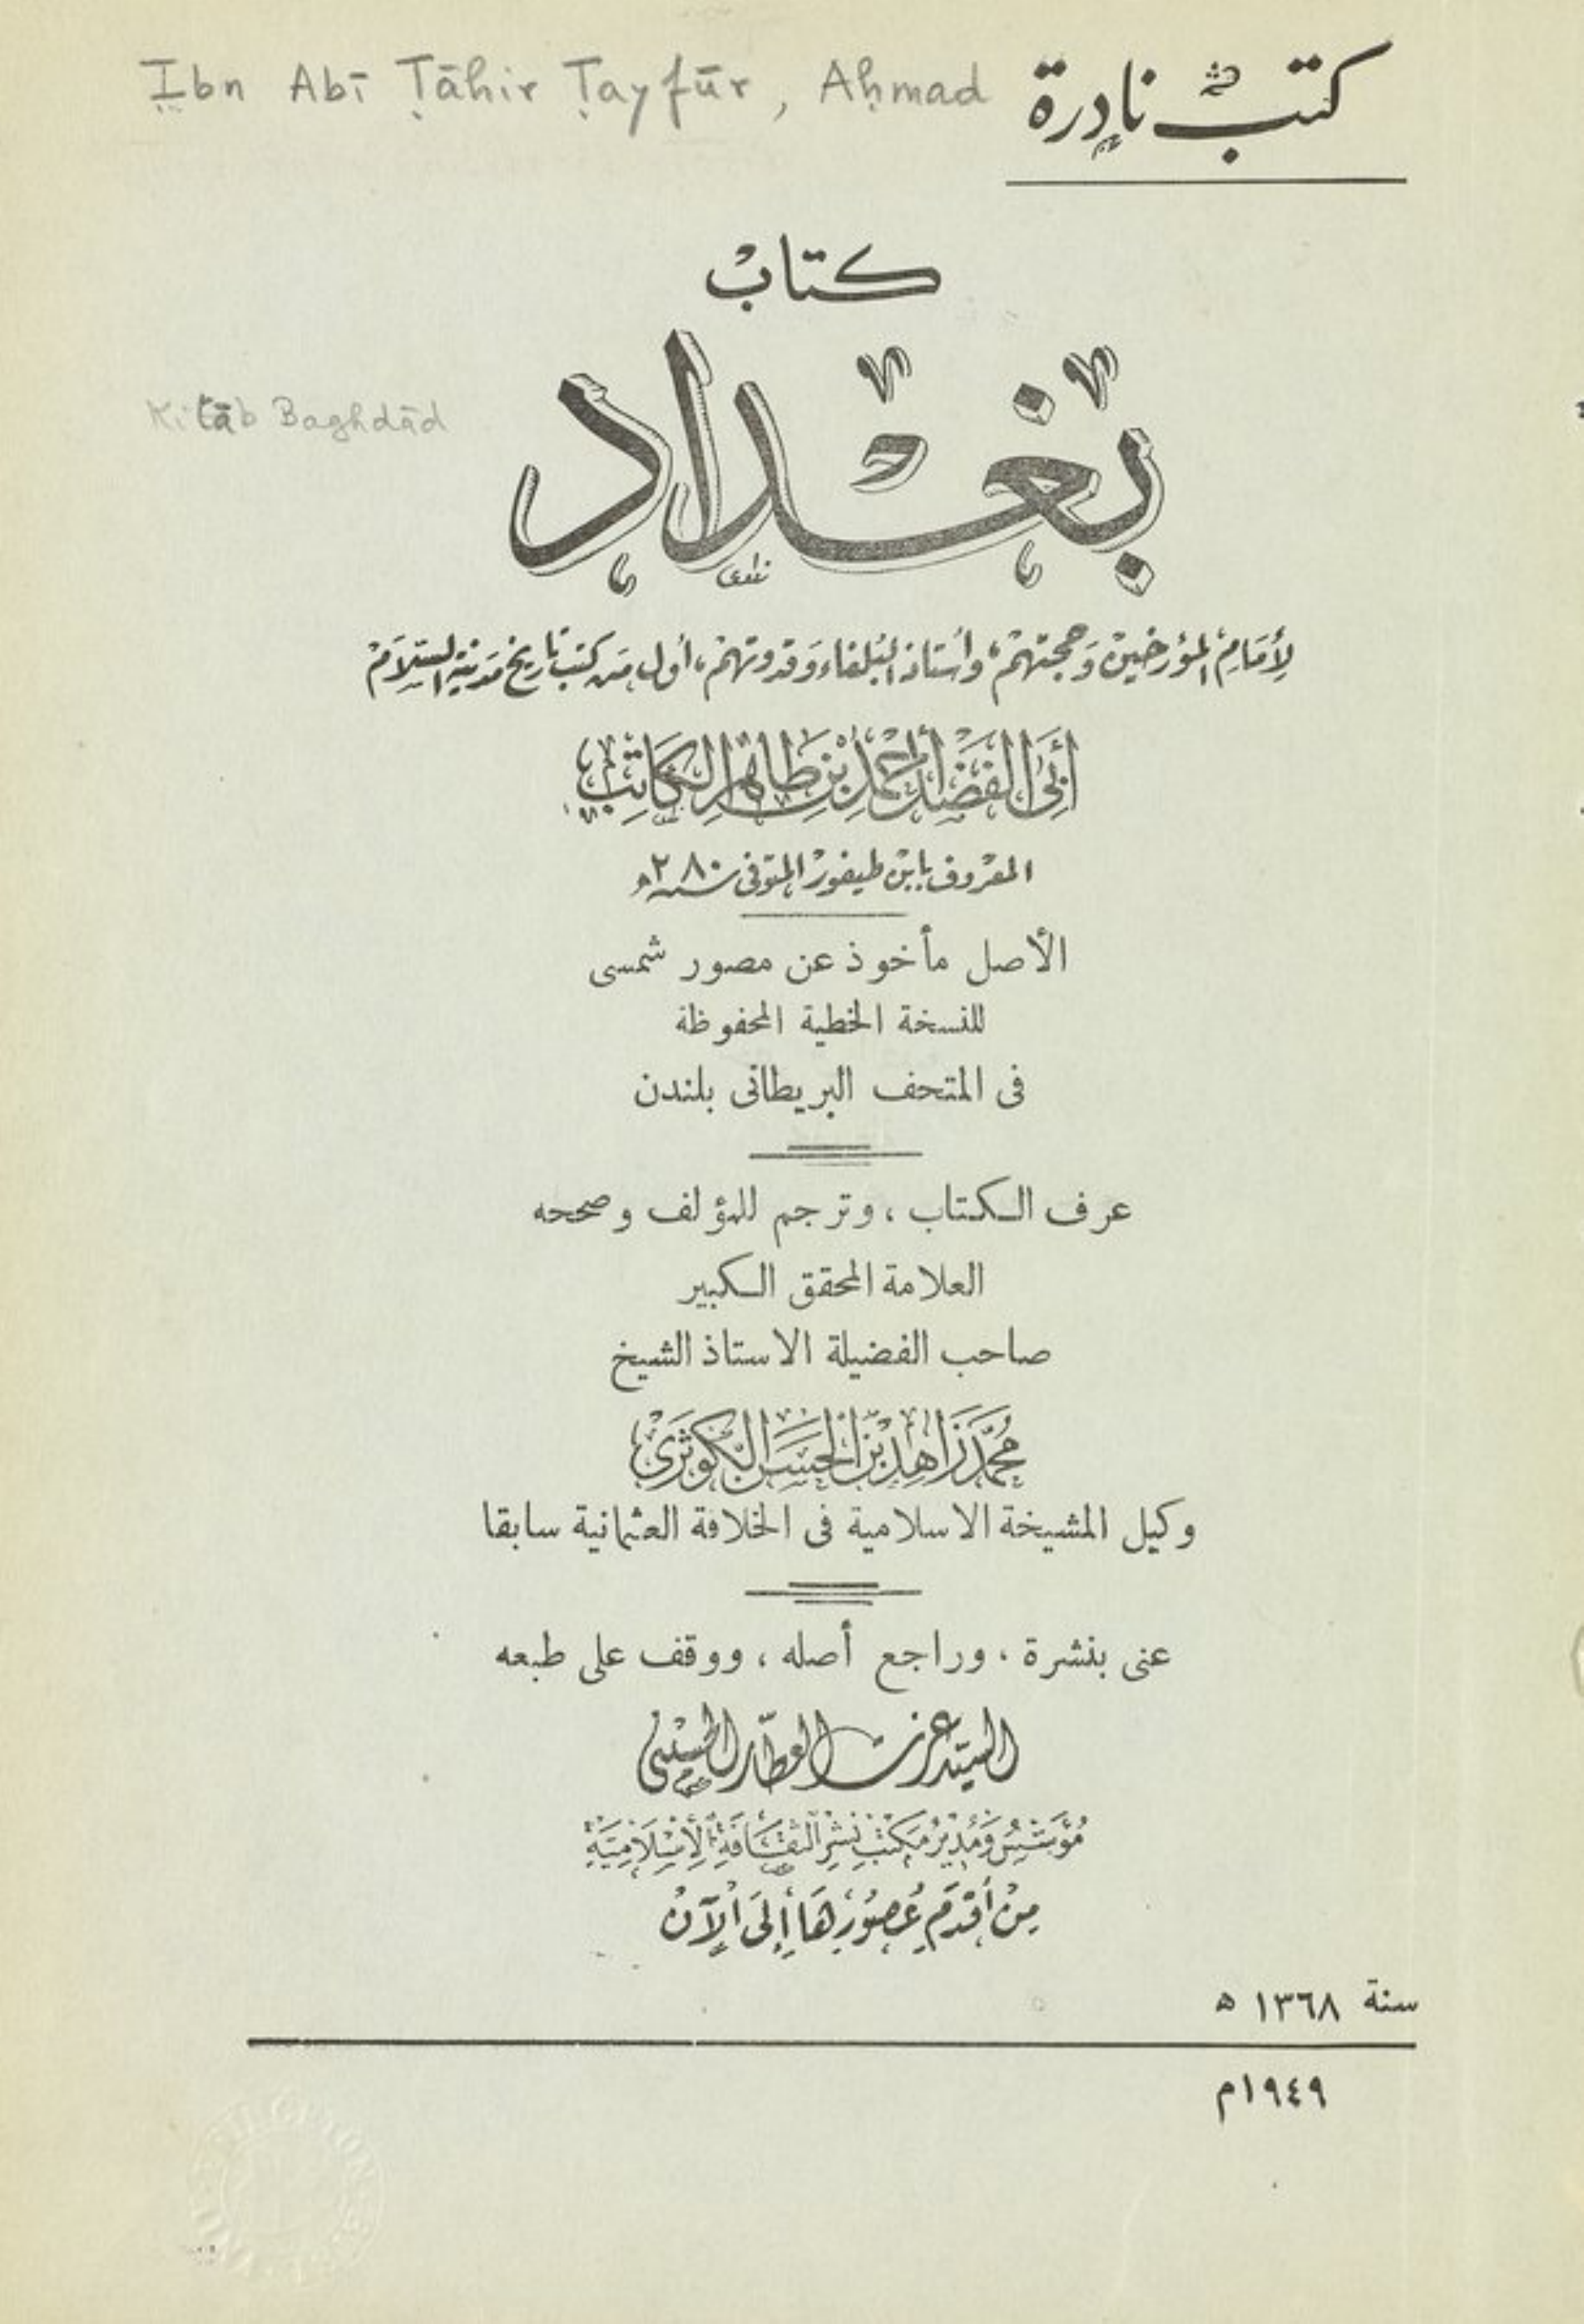 Ibn Abī Ṭāhir Ṭayfūr, Aḥmad
كتب نادرة
كتاب
Kitāb Baghdād
بغداد
لأمام المؤرخين وحجتهم، وأستاذ البلغاء وقدوتهم، أول من كتب تاريخ مدينة السلام
أبي الفضل أحمد بن طاهر الكاتب
المعروف بابن طيفور المتوفى سنة ٢٨٠ه
الأصل مأخوذ عن مصور شمسى
للنسخة الخطية المحفوظة
فى المتحف البريطانى بلندن
عرف الكتاب، وترجم للمؤلف وصححه
العلامة المحقق الكبير
صاحب الفضيلة الاستاذ الشيخ
محمد زاهد بن الحسن الكوثري
وكيل المشيخة الاسلامية فى الخلافة العثمانية سابقا
عنى بنشرة، وراجع أصله، ووقف على طبعه
السيد عزت العطار الحسيني
مؤسس ومدير مكتب نشر الثقافة الإسلامية
من أقدم عصورها إلى الآن
سنة ١٣٦٨ ه
١٩٤٩م